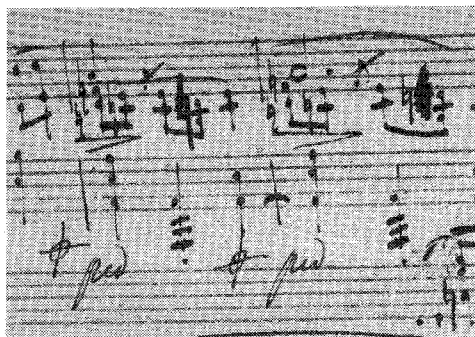 ped ped